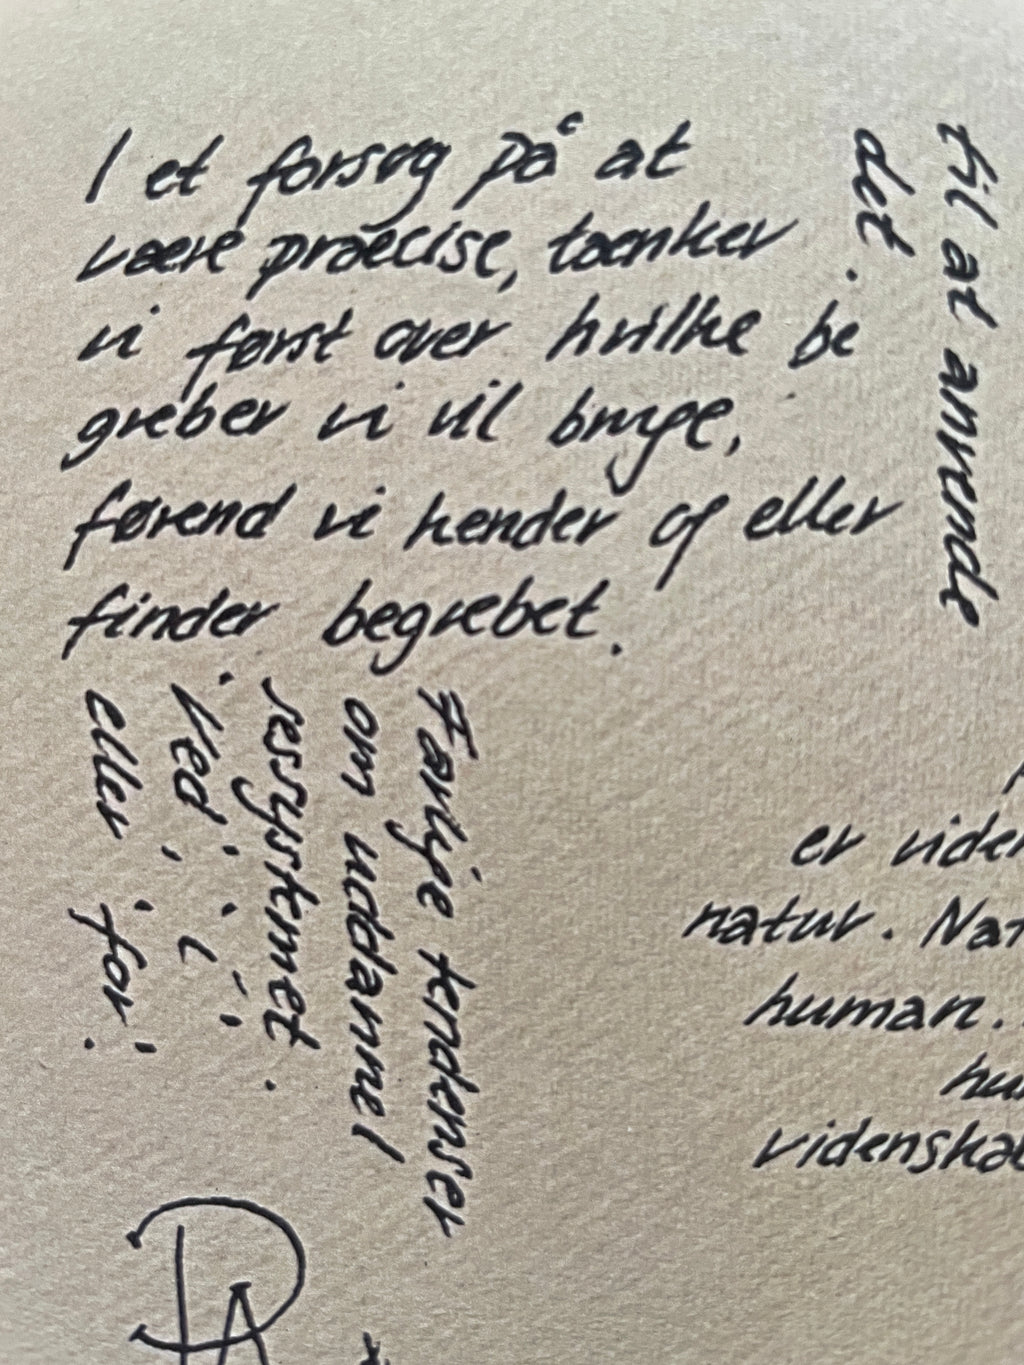 I et forsøg på at
være præcise, tænker
vi først over hvilke be
greber vi vil bruge,
førend vi kender og eller
finder begrebet.
til at anvende
det.
Farlige tendenser
om uddannel
sessystemet.
'Ved', 'i',
eller 'for'!
er viden
natur. Nat
human.
hu
videnskab
DA